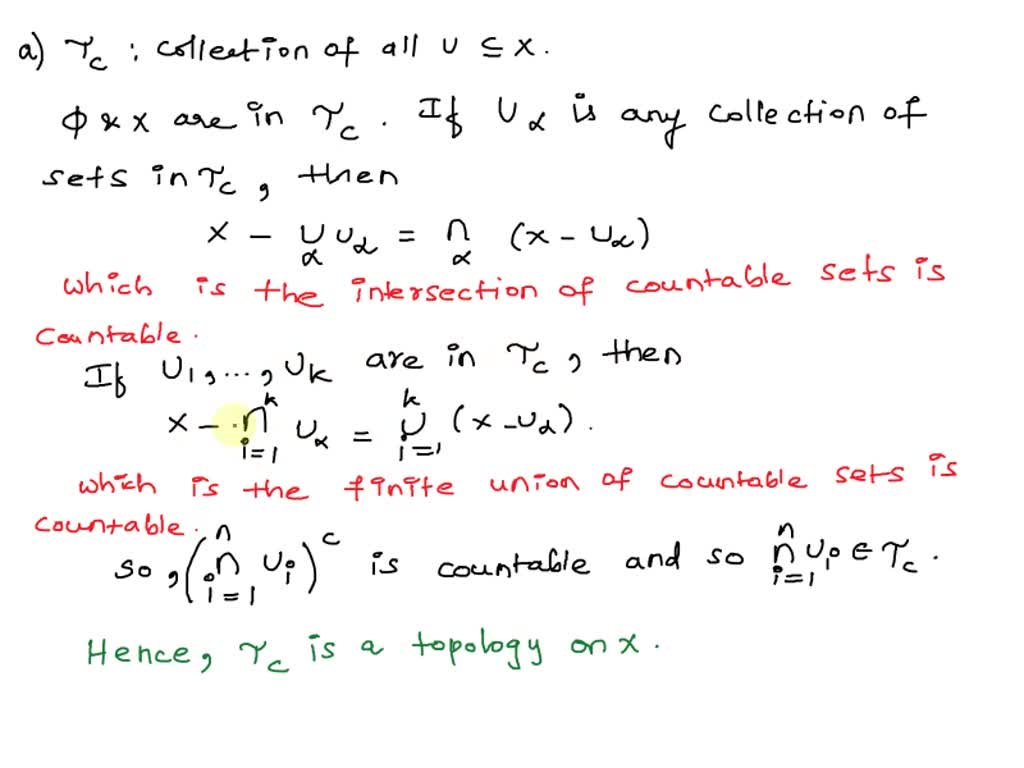 a) τ_c : collection of all U ⊆ X.
ϕ & X are in τ_c. If U_α is any collection of
sets in τ_c, then
X − ∪_α U_α = ∩_α (X − U_α)
which is the intersection of countable sets is
countable.
If U_1, ..., U_k are in τ_c, then
X − ∩_{i=1}^{k} U_α = ∪_{i=1}^{k} (X − U_α).
which is the finite union of countable sets is
countable.
So, (∩_{i=1}^{n} U_i)^c is countable and so ∩_{i=1}^{n} U_i ∈ τ_c.
Hence, τ_c is a topology on X.